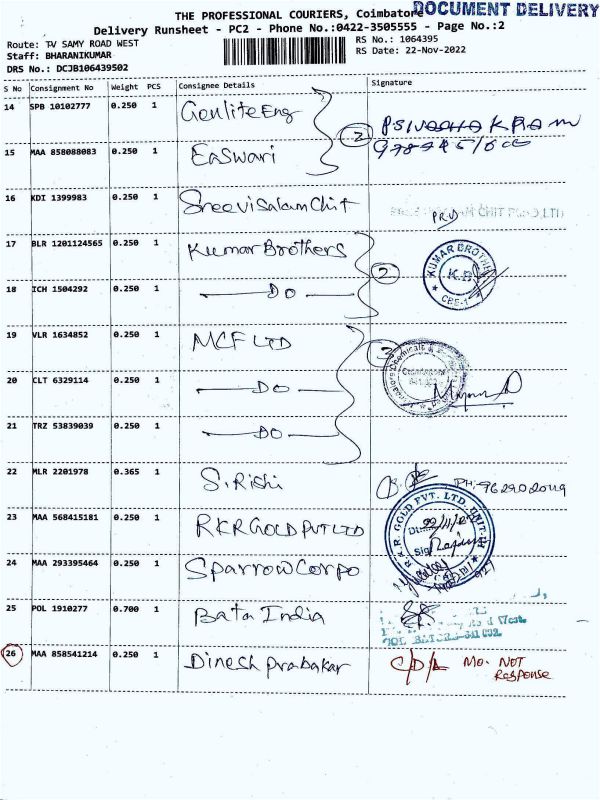 THE PROFESSIONAL COURIERS, Coimbatore
DOCUMENT DELIVERY
Delivery Runsheet - PC2 - Phone No.:0422-3505555 - Page No.:2
Route: TV SAMY ROAD WEST
RS No.: 1064395
Staff: BHARANIKUMAR
RS Date: 22-Nov-2022
DRS No.: DCJB106439502
S No Consignment No Weight PCS Consignee Details Signature
14 SPB 10102777 0.250 1 Genlite Eng
2
15 MAA 858088083 0.250 1 Easwari
16 KDI 1399983 0.250 1 Sreevisalam Chit
CHIT FUND LTD
17 BLR 1201124565 0.250 1 Kumar Brothers
KUMAR BROTHE
2
K.B
CBE-1
18 ICH 1504292 0.250 1 DO
19 VLR 1634852 0.250 1 MCF LTD
3
20 CLT 6329114 0.250 1 DO
21 TRZ 53839039 0.250 1 DO
22 MLR 2201978 0.365 1 S. Rishi
PH:
23 MAA 568415181 0.250 1 RKR GOLD PVT LTD
R.K.R. GOLD PVT. LTD. UNIT-
22/11/22
Sig
24 MAA 293395464 0.250 1 Sparrow Corpo
25 POL 1910277 0.700 1 Bata India
Road West.
26 MAA 858541214 0.250 1 Dinesh prabakar C/D/L Mo. NOT
Response